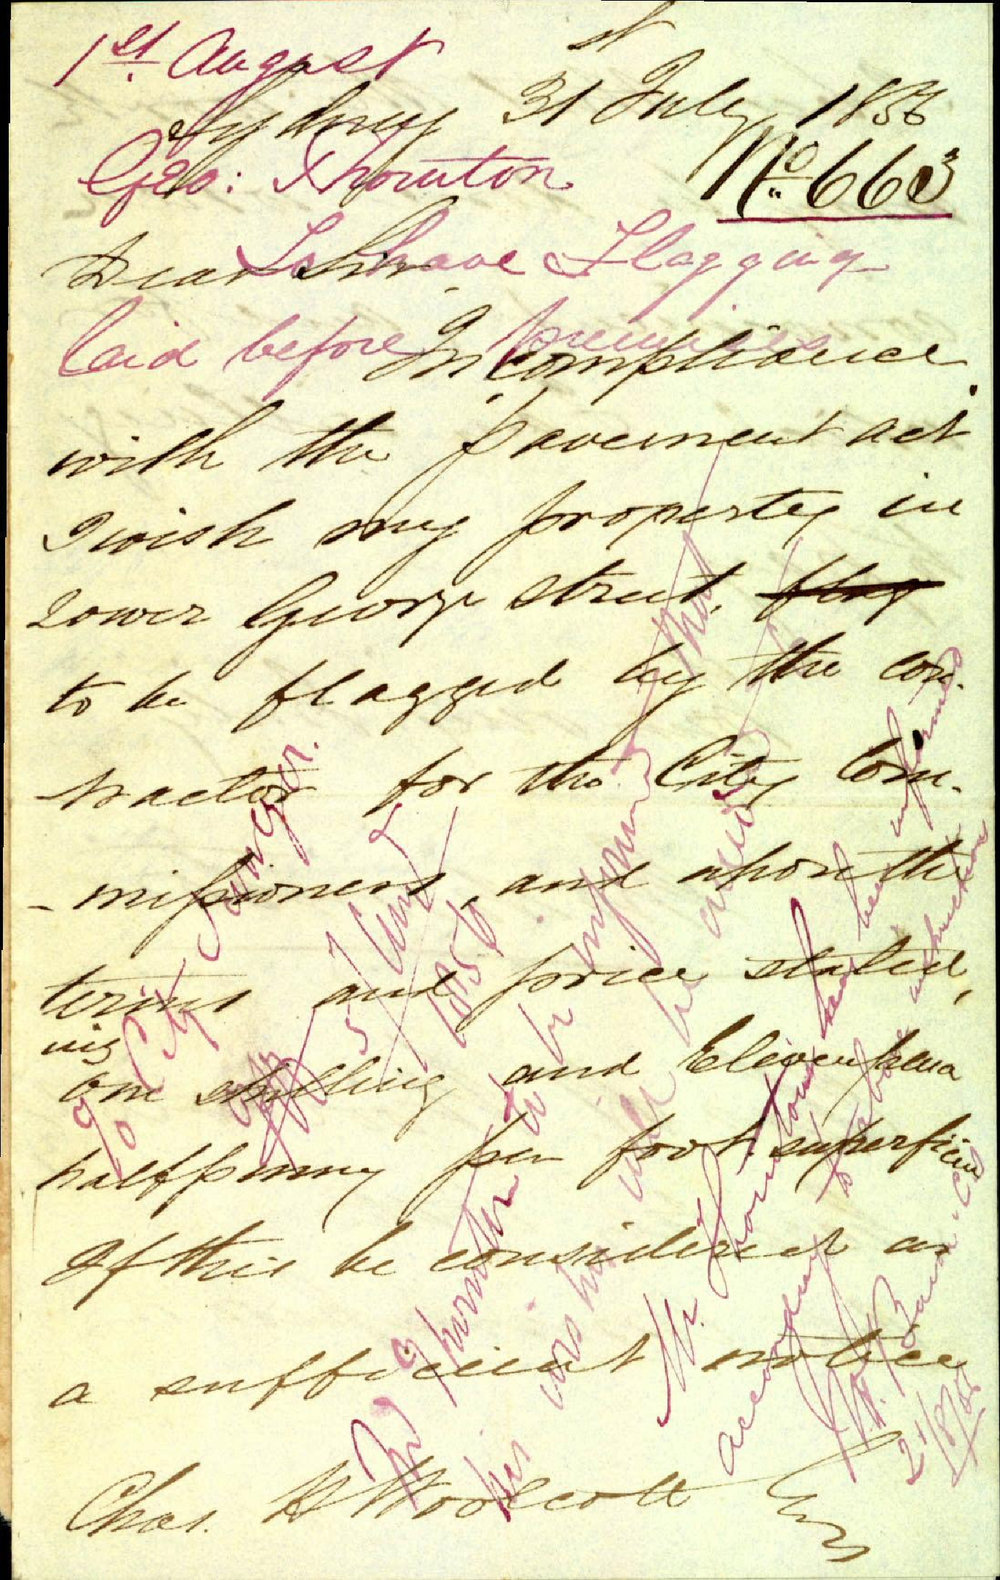 1st August
Sydney 31st July 1856
Geo: Thornton
No 663
Dear Sir
To have Flagging
laid before premises
In compliance
with the pavement act
I wish my property in
Lower George Street, flag
to be flagged by the con-
tractor for the City Com-
-missioners, and upon the
terms and price stated,
viz
One shilling and Eleven pence
halfpenny per foot superficial
If this be considered as
a sufficient notice
Chas. H Woolcott Esq
To City Surveyor.
5 Augt
1856
Mr Thornton to be informed that
his wishes will be
Mr. Thornton has been informed
according to above instructions
21/8/56